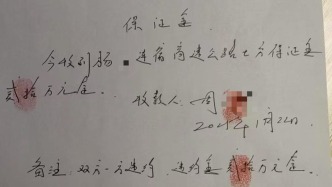 保证金
今收到杨 连宿高速公路土方保证金
贰拾万元金。
收款人:周
20 年1月22日.
备注:双方一方违约,违约金贰拾万元金。